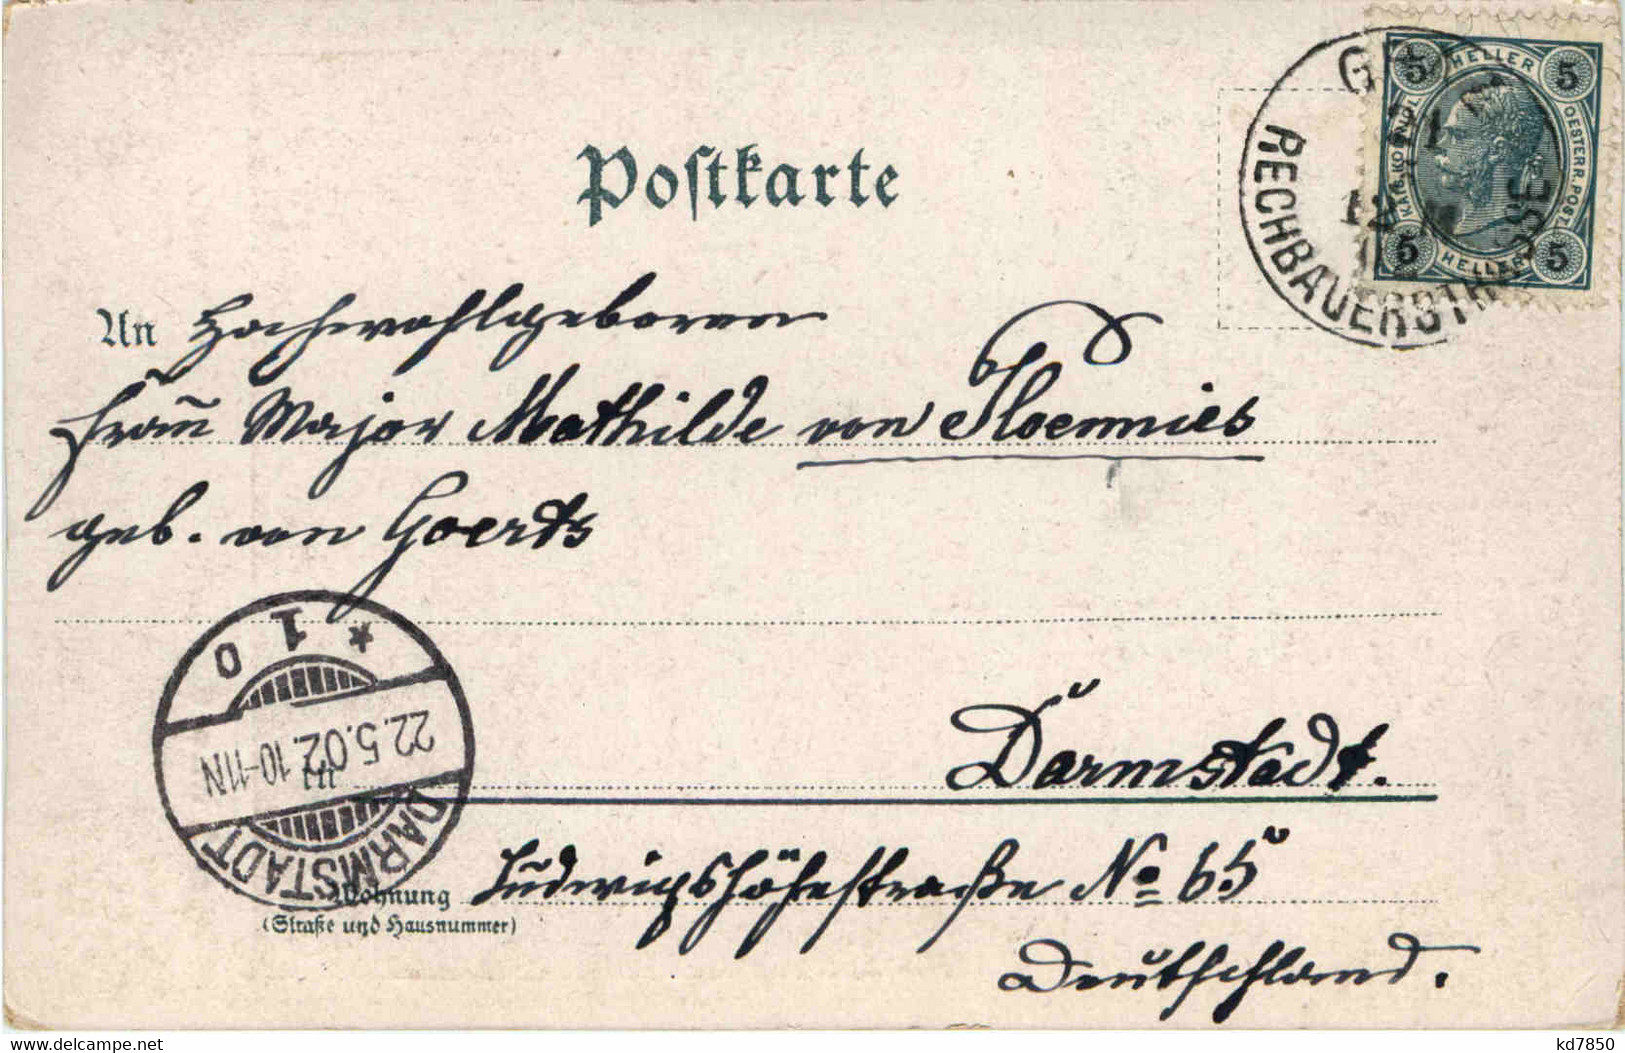 Postkarte
HELLER
5 5
KAIS. KÖNIGL. OESTERR. POST
5 5
HELLER
RECHBAUERSTRASSE
21
02
An Hochwohlgeboren
Frau Major Mathilde von Ploennies
geb. von Goerts
* 1 o
22.5.02.10-11N
DARMSTADT
in Darmstadt.
Wohnung Ludwigshöhstraße No 65
(Straße und Hausnummer)
Deutschland.
kd7850